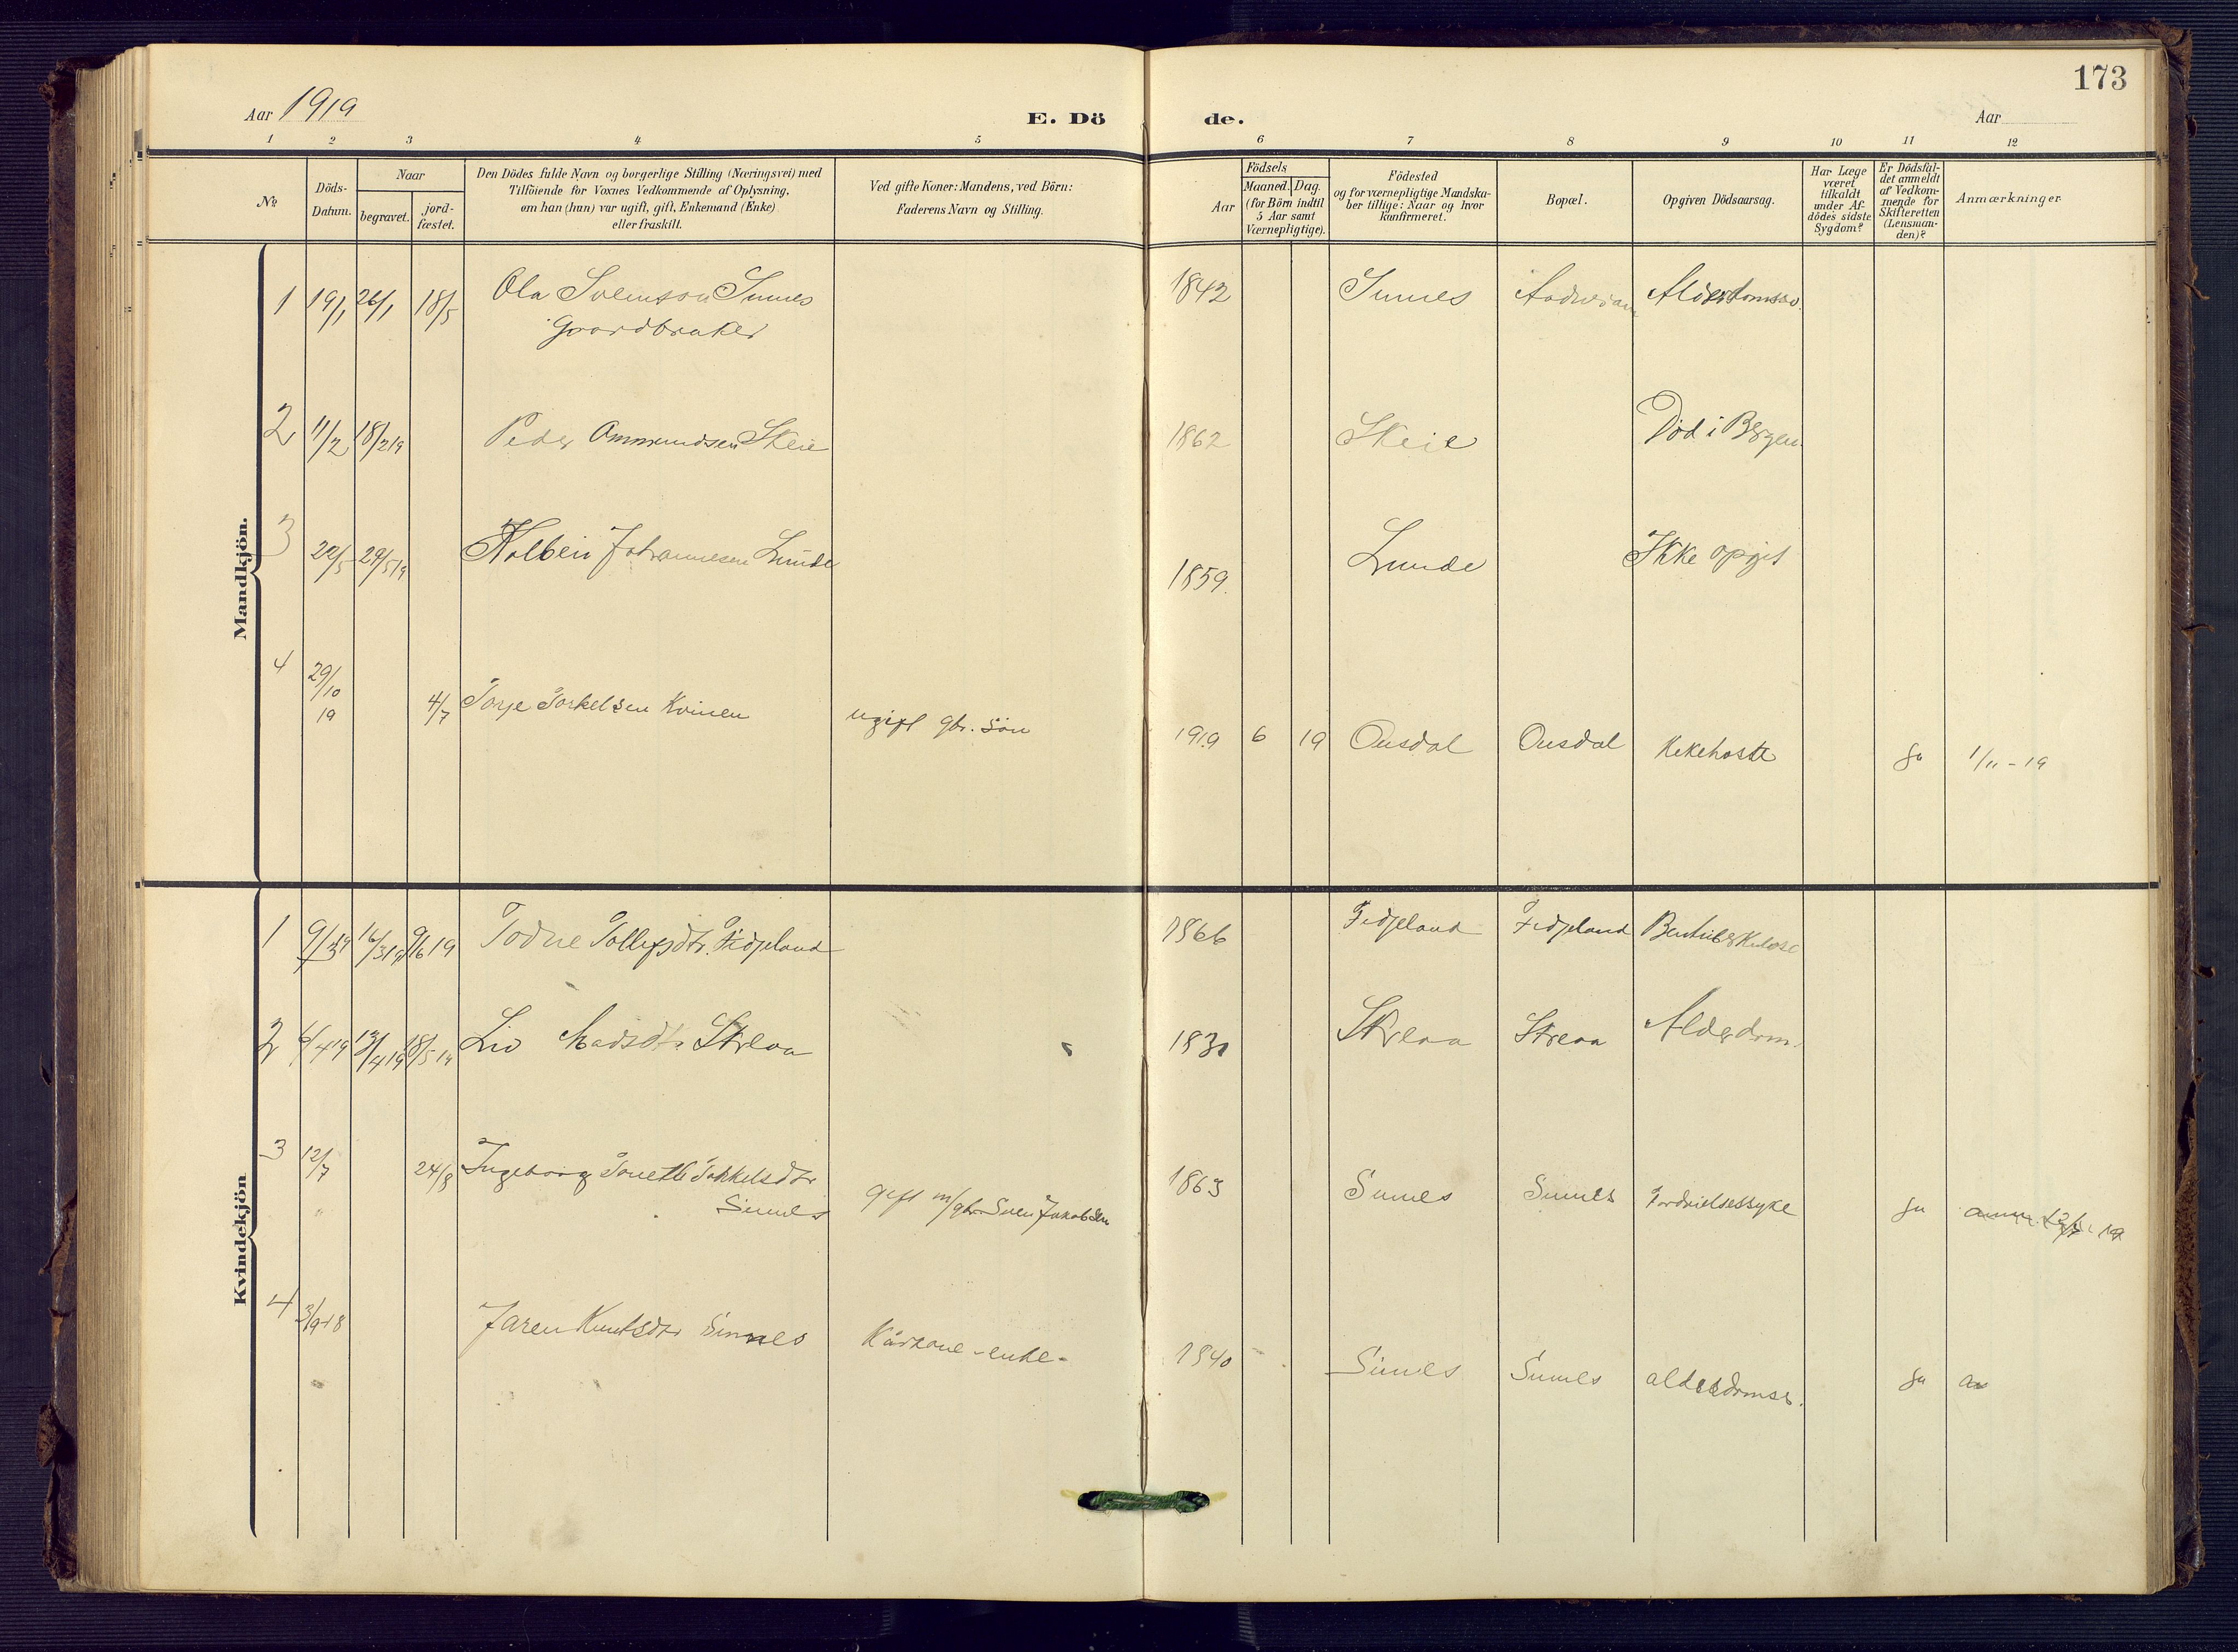 173
Aar 1919
E. Dö
de.
Aar
1 2 3 4 5 6 7 8 9 10 11 12
№
Döds-
Datum.
Naar
begravet.
jord-
fæstet.
Den Dödes fulde Navn og borgerlige Stilling (Næringsvei) med
Tilföiende for Voxnes Vedkommende af Oplysning,
om han (hun) var ugift, gift, Enkemand (Enke)
eller fraskilt.
Ved gifte Koner: Mandens, ved Börn:
Faderens Navn og Stilling.
Aar
Födsels
Maaned. Dag.
(for Börn indtil
5 Aar samt
Værnepligtige).
Födested
og for værnepligtige Mandska-
ber tillige: Naar og hvor
konfirmeret.
Bopæl.
Opgiven Dödsaarsag.
Har Læge
været
tilkaldt
under Af-
dödes sidste
Sygdom?
Er Dödsfal-
det anmeldt
af Vedkom-
mende for
Skifteretten
(Lensman-
den)?
Anmærkninger.
Mandkjön.
1 19/1 26/1 18/5 Ola Svenson Sinnes 1842 Sinnes
Gaardbruker
2 11/2 18/2 19 Peder Ommundsen Skeie 1862 Skeie Död i Bergen
3 22/5 29/5 19 Kolbein Johannesen Lunde 1859. Lunde Ikke opgit
4 29/10
19 4/7 Torje Torkelsen Kvinen ugift gbr. sön 1919 6 19 Ousdal Ousdal Kikehoste Ja 1/11-19
Kvindekjön
1 9/3 19 16/3 19 9/6 19 Todne Tollefsdtr. Fidjeland 1866 Fidjeland Fidjeland
2 6/4 19 13/4 19 18/5 19 Liv Madsdtr Skreaa 1831 Skreaa Skreaa Alderdom.
3 12/7 24/8 Ingeborg Tonette Torkelsdtr
Sinnes gift m/gbr Sven Jakobsen 1863 Sinnes Sinnes Ja
4 3/9 18 Jaren Knutsdtr Sinnes Kårkone - enke - 1840 Sinnes Sinnes alderdomss. Ja